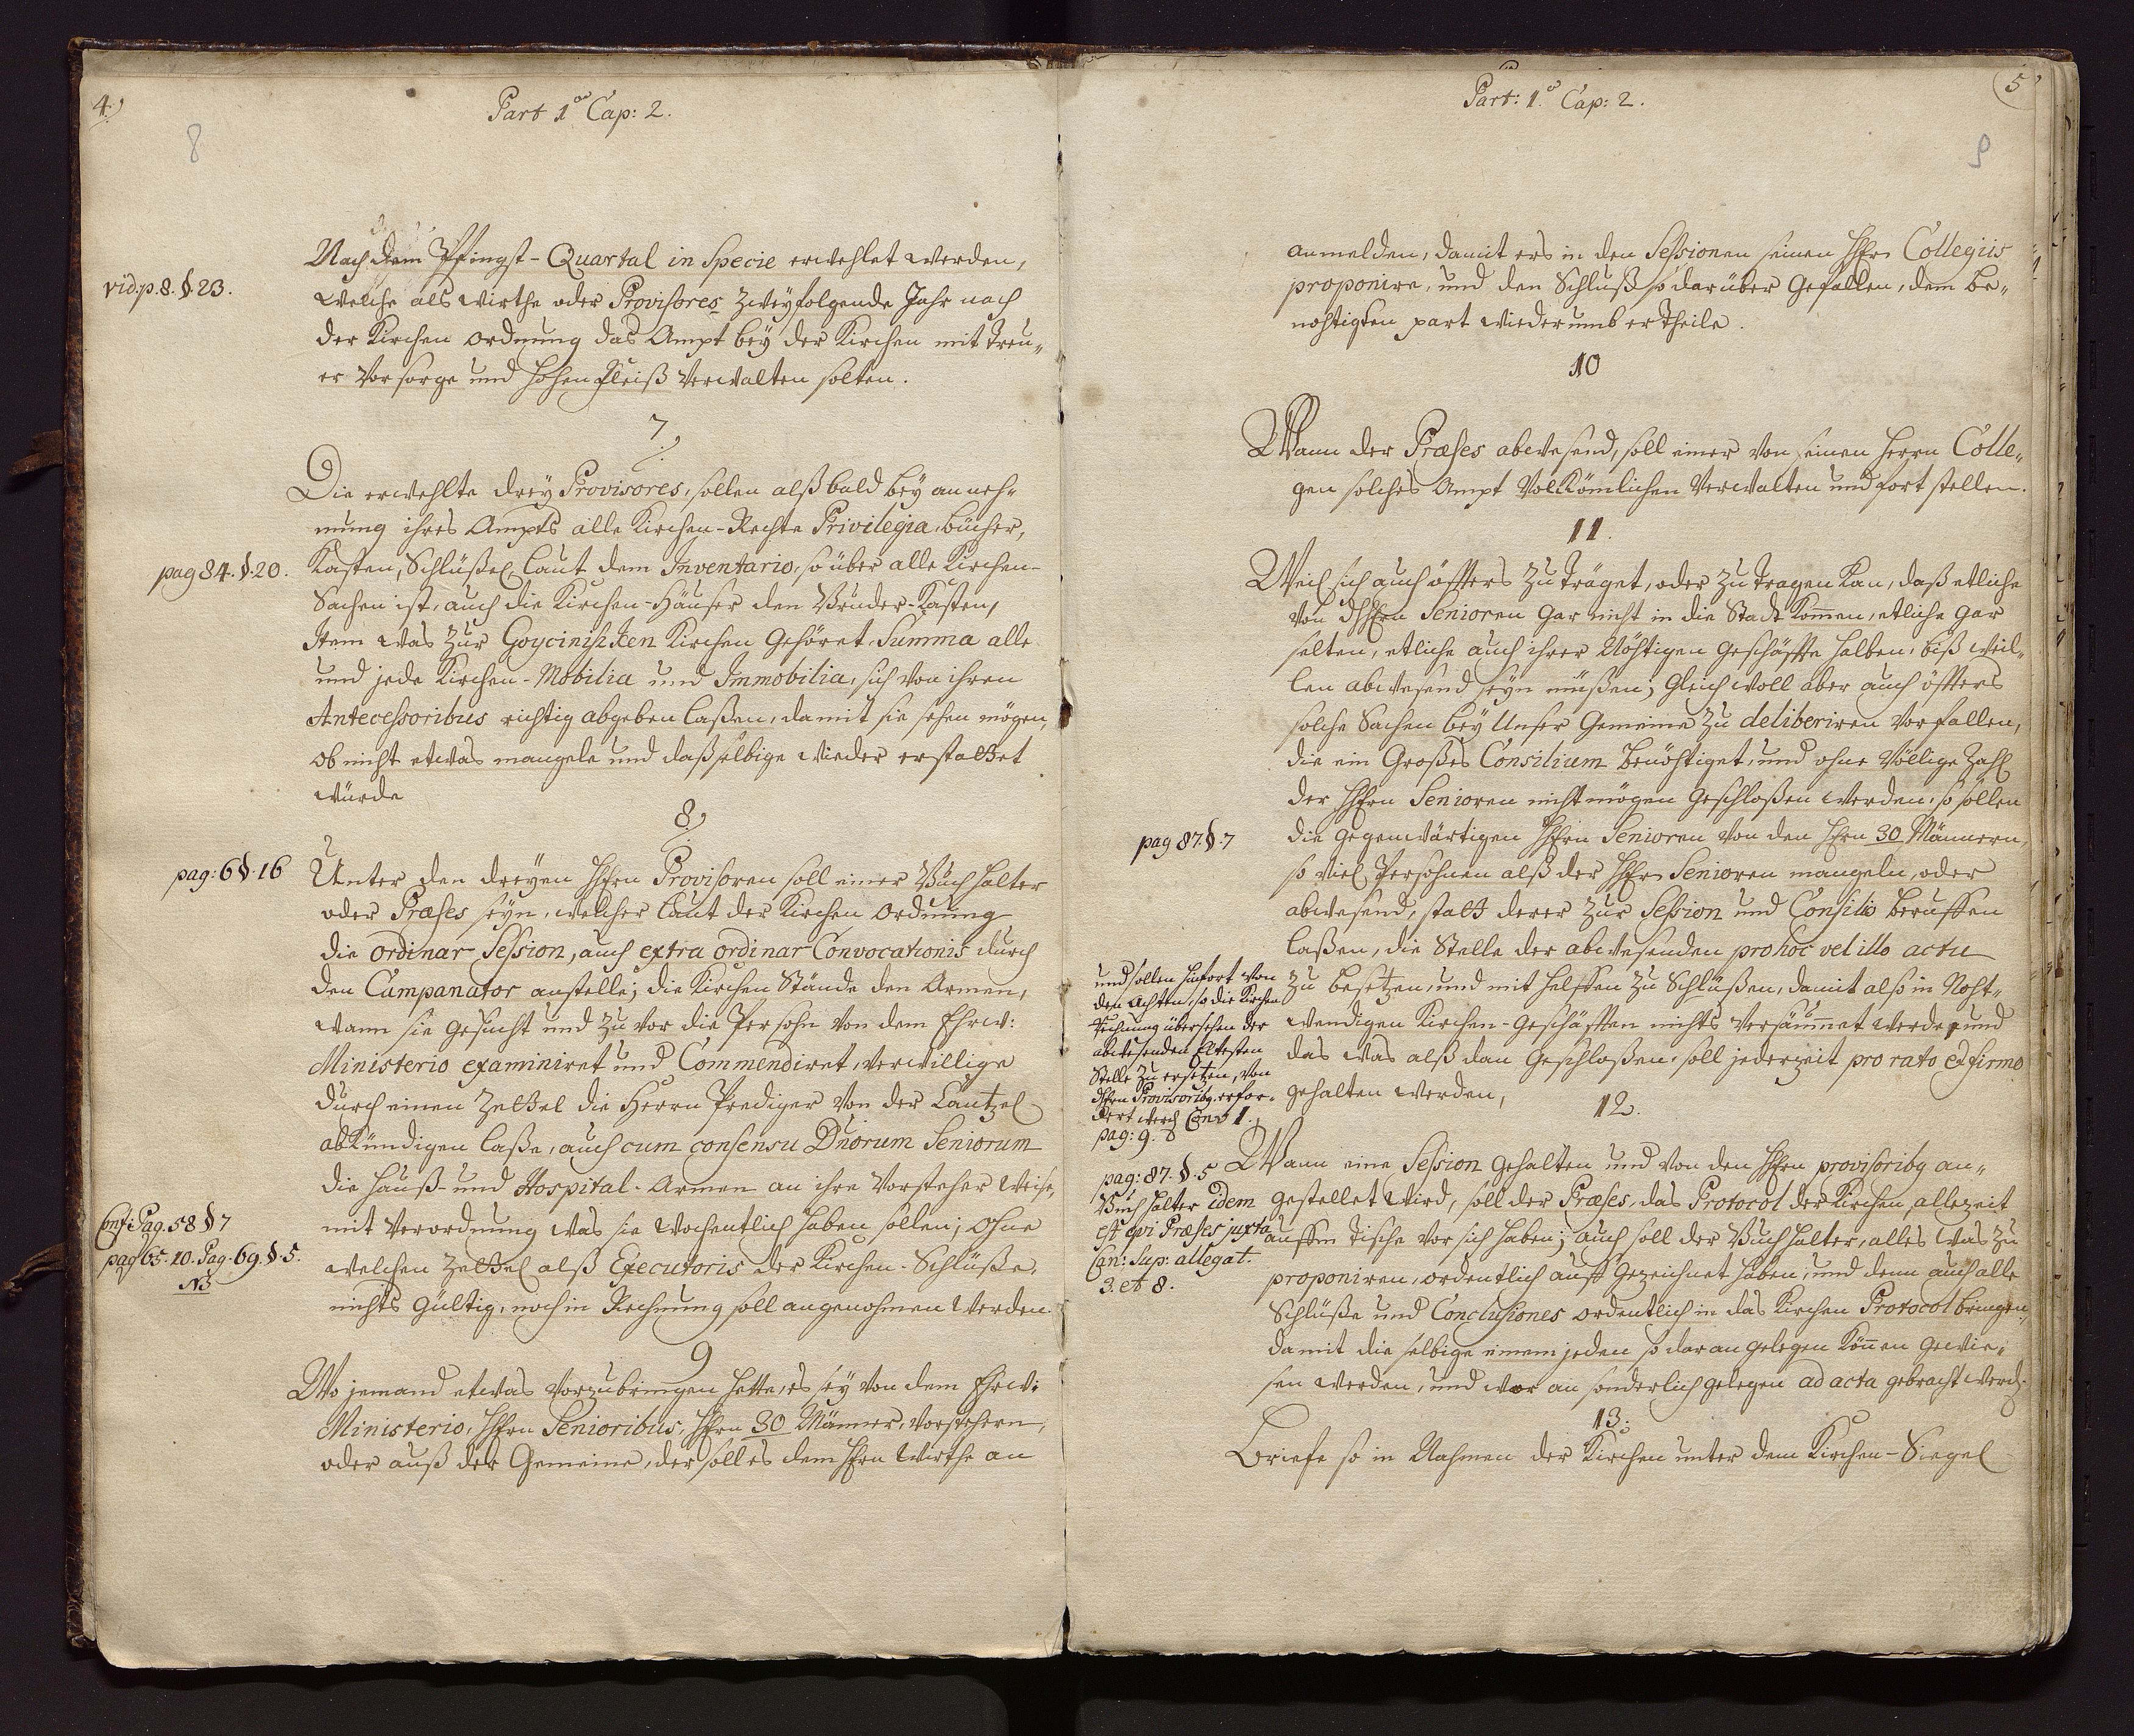 4.)
8
Part 1.a Cap: 2.
vid. p. 8. § 23.
Nach dem Pfingst-Quartal in Specie erwehlet werden,
welche als Wirthe oder Provisores zwey folgende Jahr nach
der Kirchen Ordnung das Ampt bey der Kirchen mit treu„
er Vorsorge und hohen Fleiß verwalten solten.
7
Die erwehlte drey Provisores, sollen alßbald bey anneh„
mung ihres Ampts alle Kirchen-Rechte Privilegia, bücher,
pag 84. §. 20.
Kasten, Schlüßel, laut dem Inventario, so über alle Kirchen-
Sachen ist, auch die Kirchen-Häuser den Bruder-Kasten,
Item was zur Goycinischen Kirchen gehöret, Summa alle
und jede Kirchen-Mobilia und Immobilia, sich von ihren
Antecessoribus richtig abgeben laßen, damit sie sehen mögen,
ob nicht etwas mangele und daßselbige wieder erstattet
würde
8
pag: 6 §. 16
Unter den dreyen HHrn Provisoren soll einer Buchhalter
oder Præses seyn, welcher laut der Kirchen Ordnung
die ordinar-Session, auch extra ordinar-Convocationis durch
den Campanator anstelle; die Kirchen Stände den Armen,
wann sie gesucht und zuvor die Persohn von dem Ehrw:
Ministerio examiniret und Commendiret, verwillige
durch einen Zettel die Herrn Prediger von der Cantzel
abkündigen laße, auch cum consensu Dnorum Seniorum
die Hauß- und Hospital-Armen an ihre Vorsteher weise,
Conf: Pag. 58 § 7
mit Verordnung was sie wochentlich haben sollen; ohne
pag 65. 10. Pag. 69. §. 5.
welchen Zettel alß Executoris der Kirchen-Schlüße,
NB
nichts gültig, noch in Rechnung soll angenohmen werden
9
Wo jemand etwas vorzubringen hette, es sey von dem Ehrw:
Ministerio, HHrn Senioribus, HHrn 30 Männer, Vorstehern,
oder auß der Gemeine, der soll es dem Hrn Wirthe an
5
9
Part: 1.a Cap: 2.
anmelden, damit ers in den Sessionen seinen HHrn Collegiis
proponire, und den Schluß so darüber gefallen, dem be„
nöhtigten part wiederumb ertheile.
10
Wann der Præses abwesend, soll einer von seinen Herrn Colle„
gen solches Ampt Volkömlichen verwalten und fortstellen.
11.
Weil sich auch öffters zuträget, oder zutragen kan, daß etliche
von dHHrn Senioren gar nicht in die Stadt kom̄en, etliche gar
selten, etliche auch ihrer Nöhtigen Geschäffte halben, biß weil„
len abwesend seyn müßen; gleich woll aber auch öffters
solche Sachen bey Unser Gemeine zu deliberiren vorfallen,
die ein Großes Consilium benöhtiget, und ohne völlige Zahl
der HHrn Senioren nicht mögen geschloßen werden, so sollen
pag 87. §. 7
die gegenwärtigen HHrn Senioren von den HHrn 30 Männern,
so viel Persohnen alß der HHrn Senioren mangeln, oder
abwesend, statt derer zur Session und Consilio beruffen
laßen, die Stelle der abwesenden pro hoc vel illo actu
zu besetzen, und mit helffen zu Schlüßen, damit also in Noht„
wendigen Kirchen-Geschäfften nichts versäum̄et werde, und
das was alß dan geschloßen, soll jederzeit pro rato et firmo
gehalten werden,
und sollen hinfort von
den Achten, so die Kirchen
Rechnung übersehen der
abwesenden Eltesten
Stelle zu ersetzen, von
dHHrn Provisoribq erfor„
dert werd. Conv 1.
pag: 9.
12.
pag: 87. §. 5
Wann eine Session gehalten und von den HHrn provisoribq an„
Buchhalter idem
gestellet wird, soll der Præses, das Protocol der Kirchen allezeit
est qvi Præses juxta
auffm Tische vor sich haben; auch soll der Buchhalter, alles was zu
Can: Sup: allegat.
3. et 8.
proponiren, ordentlich auff gezeichnet haben, und denn auch alle
Schlüße und Conclusiones ordentlich in das Kirchen Protocol bringen,
damit die selbige einem jeden so daran gelegen kön̄en gewie„
sen werden, und wor an sonderlich gelegen ad acta gebracht werd.
13.
Briefe so in Nahmen der Kirchen unter dem Kirchen-Siegel